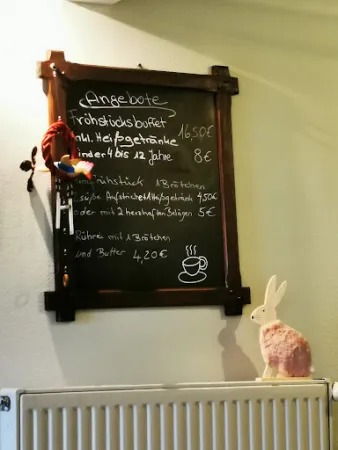 Angebote
Frühstücksbuffet
inkl. Heißgetränke 16,50€
Kinder 4 bis 12 Jahre 8€
1 Brötchen
süße Aufstriche 1 Heißgetränk 4,50€
oder mit 2 herzhaften Belägen 5€
Rührei mit 1 Brötchen
und Butter 4,20€